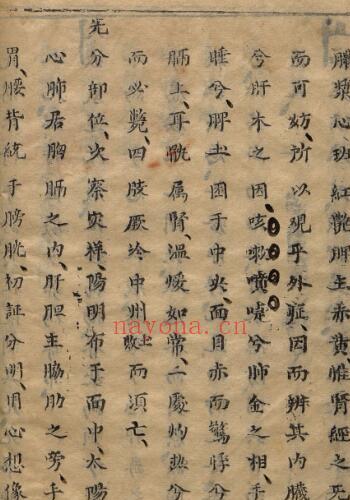 膿漿心班紅艷脾主赤黄惟腎經之
而可妨、所以現乎外症、因而辨其内臟
兮肝木之因咳嗽噴嚏兮肺金之相手
睡兮脾土困于中央、面目赤而驚悸兮
膈上、耳骩属腎、温煖如常、二處灼熱兮
而必斃、四肢厥冷中州土敗而須亡、
先分部位、次察灾祥、陽明布于面中、太陽
心肺居胸膈之内、肝胆主脇肋之旁、手
胃、腰背統于膀胱、初証分明、用心想像
nayona.cn